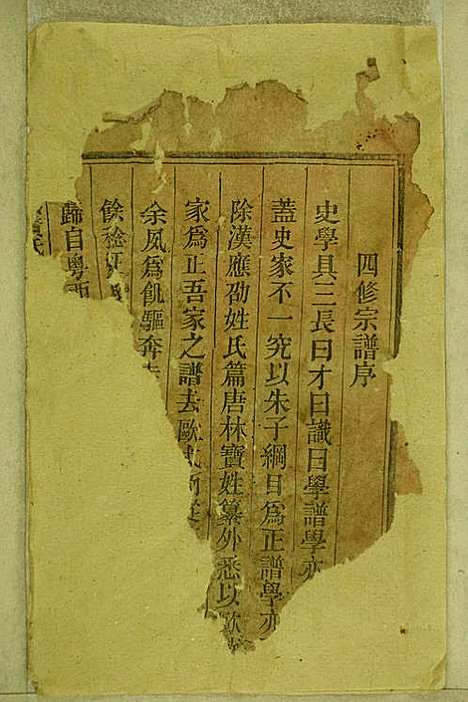 四修宗譜序
史學具三長曰才曰識曰學譜學亦
蓋史家不一究以朱子綱目為正譜學亦
除漢應劭姓氏篇唐林寶姓纂外悉以歐
家爲正吾家之譜去歐
余夙爲飢驅奔走
餘稔
歸自粵西